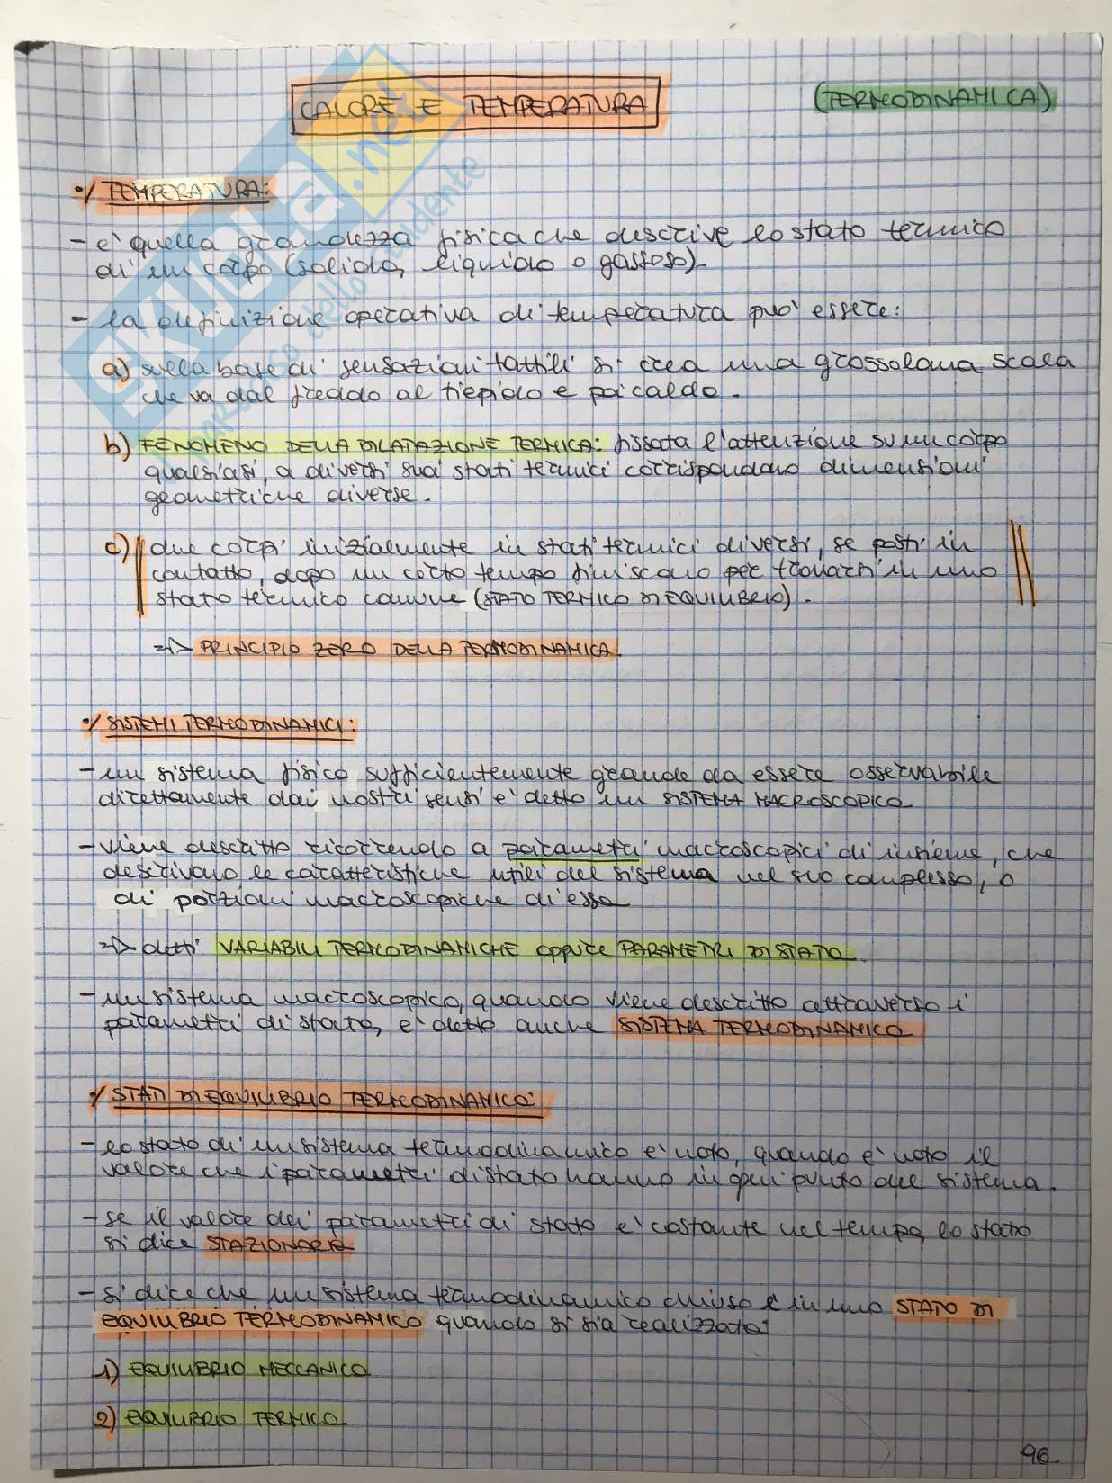 CALORE E TEMPERATURA
(TERMODINAMICA)
•/ TEMPERATURA:
- e' quella grandezza fisica che descrive lo stato termico
di un corpo (solido, liquido o gassoso).
- la definizione operativa di temperatura puo' essere:
a) sulla base di sensazioni tattili si crea una grossolana scala
che va dal freddo al tiepido e poi caldo.
b) FENOMENO DELLA DILATAZIONE TERMICA: fissata l'attenzione su un corpo
qualsiasi, a diversi suoi stati termici corrispondono dimensioni
geometriche diverse.
c) due corpi inizialmente in stati termici diversi, se posti in
contatto, dopo un certo tempo finiscono per trovarsi in uno
stato termico comune (STATO TERMICO DI EQUILIBRIO).
=> PRINCIPIO ZERO DELLA TERMODINAMICA.
•/ SISTEMI TERMODINAMICI:
- un sistema fisico sufficientemente grande da essere osservabile
direttamente dai nostri sensi e' detto un SISTEMA MACROSCOPICO
- viene descritto ricorrendo a parametri macroscopici di insieme, che
descrivono le caratteristiche utili del sistema nel suo complesso, o
di porzioni macroscopiche di esso
=> detti VARIABILI TERMODINAMICHE oppure PARAMETRI DI STATO.
- un sistema macroscopico, quando viene descritto attraverso i
parametri di stato, e' detto anche SISTEMA TERMODINAMICO
•/ STATI DI EQUILIBRIO TERMODINAMICO:
- lo stato di un sistema termodinamico e' noto, quando e' noto il
valore che i parametri di stato hanno in ogni punto del sistema.
- se il valore dei parametri di stato e' costante nel tempo, lo stato
si dice STAZIONARIO
- si dice che un sistema termodinamico chiuso e' in uno STATO DI
EQUILIBRIO TERMODINAMICO quando si sia realizzato:
1) EQUILIBRIO MECCANICO
2) EQUILIBRIO TERMICO
96
skuola.net